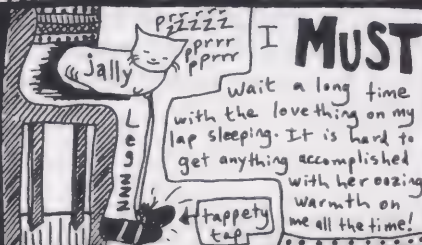 prrrrr
zzzzz
pprrr
pprrr
jally
Legzzz
tappety
tap
I MUST
wait a long time
with the lovething on my
lap sleeping. It is hard to
get anything accomplished
with her oozing
warmth on
me all the time!